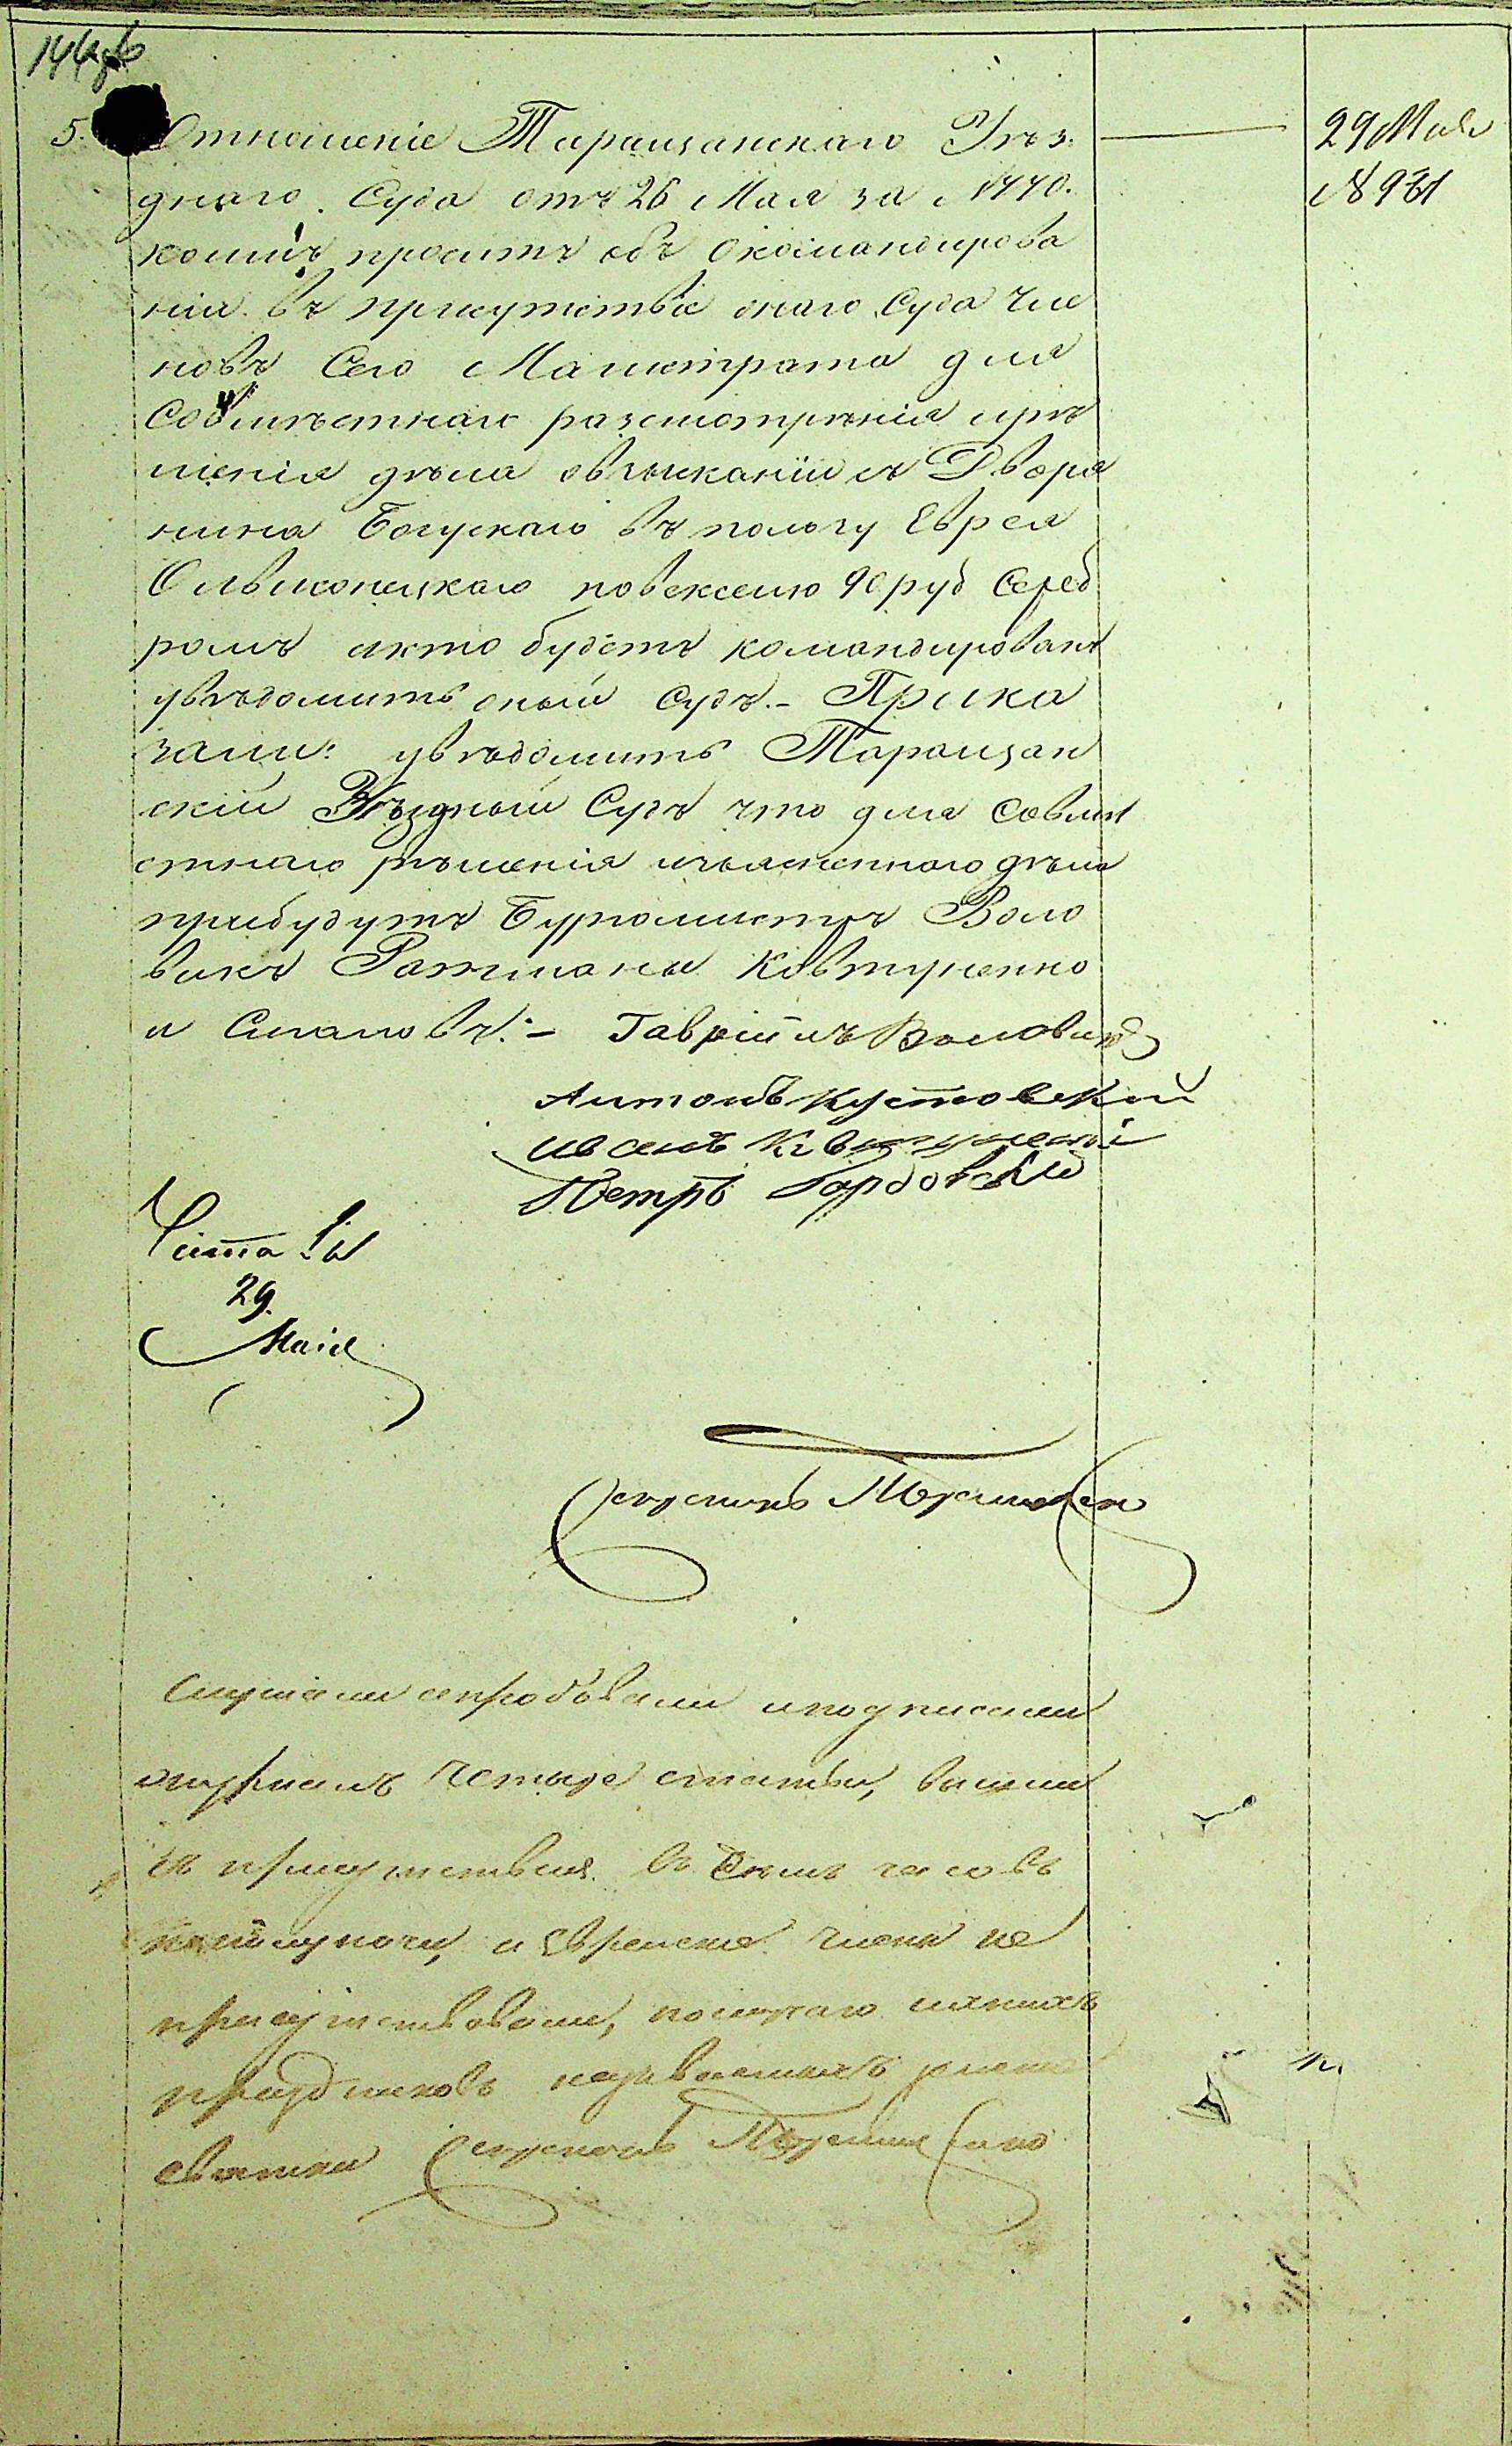 144об
5. Отношеніе Таращанскаго Уѣз.
29 Мая
дного Суда отъ 26 Мая за № 1440.
№ 931
коимъ проситъ объ окомандирова
ніи въ присутствіе онаго Суда Чле
новъ Сего Магистрата для
Совмѣстнаго разсмотрѣнія ирѣ
шенія дѣла овзысканіи съ Дворя
нина Богускаго въ пользу Еврея
повекселю 90 руб Сереб
ромъ икто будетъ командированъ
увѣдомить оный Судъ. - Прика
зали: увѣдомить Таращан
скій Уѣздный Судъ что для Совмѣ
стнаго рѣшенія изъясненнаго дѣла
прибудутъ Бургомистръ Воло
викъ Ратманы Ковтуненко
и :- Гавріилъ Воловикъ
Антонъ Кустовскій
Петръ
Читалъ
29.
Маія
Секретарь
Слушали и подписали
журналъ Четыре статьи, вышли
изъ присутствія въ часовъ
по полуночи, а Евреские члены не
присутствовали, по случаю
праздниковъ называемыхъ
святки Секретарь